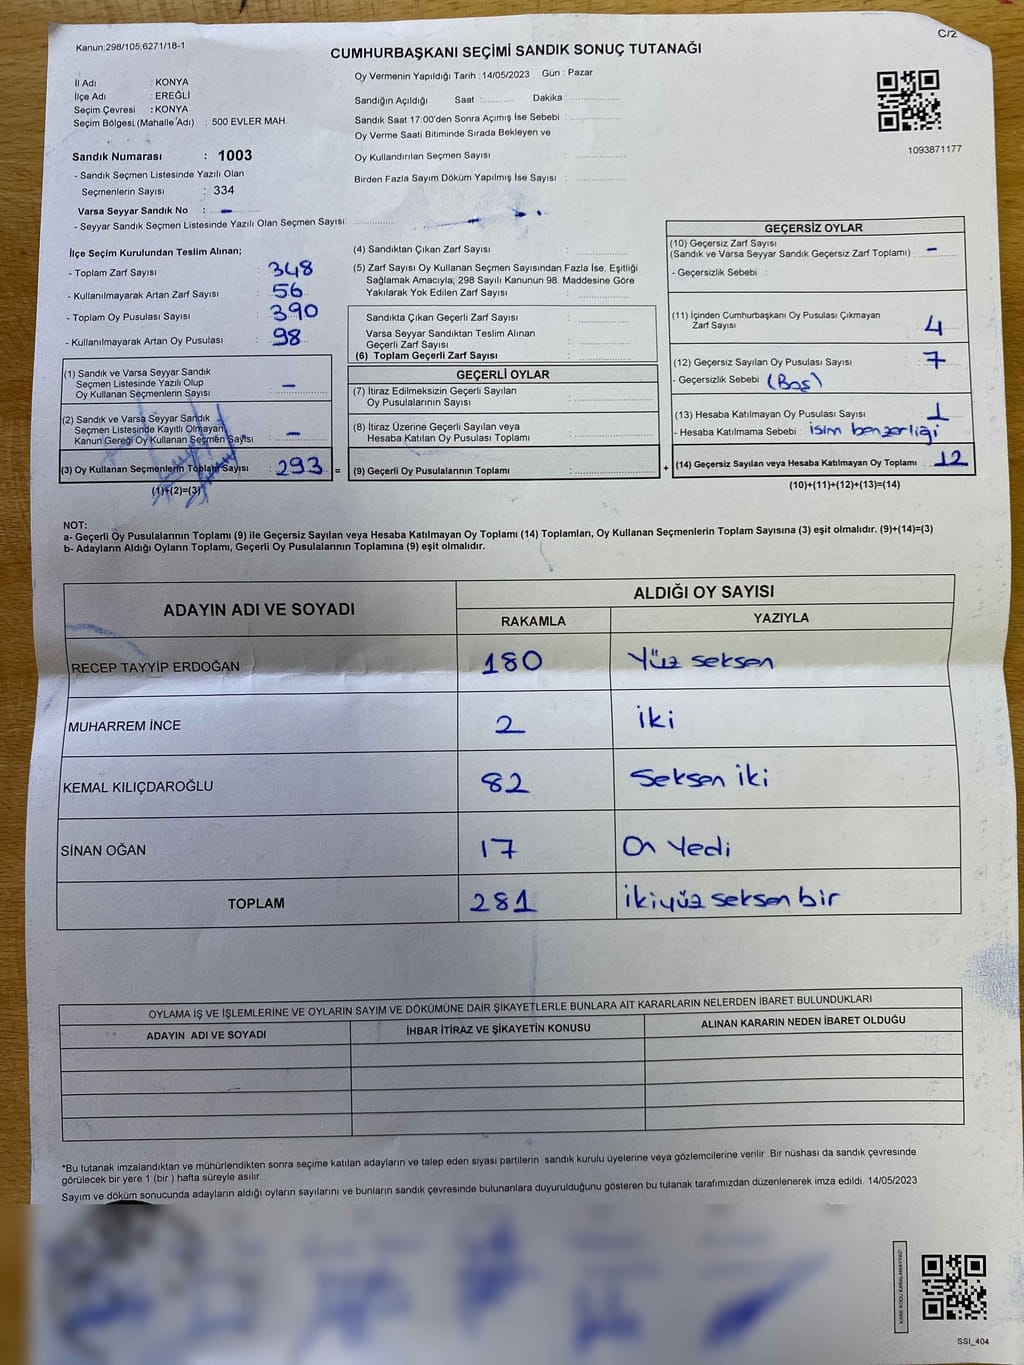 Kanun:298/105,6271/18-1
C/2
CUMHURBAŞKANI SEÇİMİ SANDIK SONUÇ TUTANAĞI
İl Adı : KONYA
İlçe Adı : EREĞLİ
Seçim Çevresi : KONYA
Seçim Bölgesi (Mahalle Adı) : 500 EVLER MAH.
Sandık Numarası : 1003
- Sandık Seçmen Listesinde Yazılı Olan
Seçmenlerin Sayısı : 334
Varsa Seyyar Sandık No : -
- Seyyar Sandık Seçmen Listesinde Yazılı Olan Seçmen Sayısı: -
Oy Vermenin Yapıldığı Tarih :14/05/2023 Gün : Pazar
Sandığın Açıldığı Saat : Dakika :
Sandık Saat 17:00'den Sonra Açımış İse Sebebi :
Oy Verme Saati Bitiminde Sırada Bekleyen ve
Oy Kullandırılan Seçmen Sayısı :
Birden Fazla Sayım Döküm Yapılmış İse Sayısı :
1093871177
İlçe Seçim Kurulundan Teslim Alınan;
- Toplam Zarf Sayısı : 348
- Kullanılmayarak Artan Zarf Sayısı : 56
- Toplam Oy Pusulası Sayısı : 390
- Kullanılmayarak Artan Oy Pusulası : 98
(1) Sandık ve Varsa Seyyar Sandık
Seçmen Listesinde Yazılı Olup
Oy Kullanan Seçmenlerin Sayısı : -
(2) Sandık ve Varsa Seyyar Sandık
Seçmen Listesinde Kayıtlı Olmayan
Kanun Gereği Oy Kullanan Seçmen Sayısı : -
(3) Oy Kullanan Seçmenlerin Toplam Sayısı : 293 =
(1)+(2)=(3)
(4) Sandıktan Çıkan Zarf Sayısı :
(5) Zarf Sayısı Oy Kullanan Seçmen Sayısından Fazla İse, Eşitliği
Sağlamak Amacıyla, 298 Sayılı Kanunun 98. Maddesine Göre
Yakılarak Yok Edilen Zarf Sayısı :
Sandıkta Çıkan Geçerli Zarf Sayısı :
Varsa Seyyar Sandıktan Teslim Alınan
Geçerli Zarf Sayısı :
(6) Toplam Geçerli Zarf Sayısı :
GEÇERLİ OYLAR
(7) İtiraz Edilmeksizin Geçerli Sayılan
Oy Pusulalarının Sayısı :
(8) İtiraz Üzerine Geçerli Sayılan veya
Hesaba Katılan Oy Pusulaları Toplamı :
(9) Geçerli Oy Pusulalarının Toplamı : +
GEÇERSİZ OYLAR
(10) Geçersiz Zarf Sayısı
(Sandık ve Varsa Seyyar Sandık Geçersiz Zarf Toplamı) : -
- Geçersizlik Sebebi :
(11) İçinden Cumhurbaşkanı Oy Pusulası Çıkmayan
Zarf Sayısı : 4
(12) Geçersiz Sayılan Oy Pusulası Sayısı : 7
- Geçersizlik Sebebi : (Boş)
(13) Hesaba Katılmayan Oy Pusulası Sayısı : 1
- Hesaba Katılmama Sebebi : isim benzerliği
(14) Geçersiz Sayılan veya Hesaba Katılmayan Oy Toplamı : 12
(10)+(11)+(12)+(13)=(14)
NOT:
a- Geçerli Oy Pusulalarının Toplamı (9) ile Geçersiz Sayılan veya Hesaba Katılmayan Oy Toplamı (14) Toplamları, Oy Kullanan Seçmenlerin Toplam Sayısına (3) eşit olmalıdır. (9)+(14)=(3)
b- Adayların Aldığı Oyların Toplamı, Geçerli Oy Pusulalarının Toplamına (9) eşit olmalıdır.
ADAYIN ADI VE SOYADI
ALDIĞI OY SAYISI
RAKAMLA YAZIYLA
RECEP TAYYİP ERDOĞAN 180 Yüz seksen
MUHARREM İNCE 2 iki
KEMAL KILIÇDAROĞLU 82 Seksen iki
SİNAN OĞAN 17 On Yedi
TOPLAM 281 ikiyüz seksen bir
OYLAMA İŞ VE İŞLEMLERİNE VE OYLARIN SAYIM VE DÖKÜMÜNE DAİR ŞİKAYETLERLE BUNLARA AİT KARARLARIN NELERDEN İBARET BULUNDUKLARI
ADAYIN ADI VE SOYADI İHBAR İTİRAZ VE ŞİKAYETİN KONUSU ALINAN KARARIN NEDEN İBARET OLDUĞU
*Bu tutanak imzalandıktan ve mühürlendikten sonra seçime katılan adayların ve talep eden siyasi partilerin sandık kurulu üyelerine veya gözlemcilerine verilir. Bir nüshası da sandık çevresinde
görülecek bir yere 1 (bir ) hafta süreyle asılır.
Sayım ve döküm sonucunda adayların aldığı oyların sayılarını ve bunların sandık çevresinde bulunanlara duyurulduğunu gösteren bu tutanak tarafımızdan düzenlenerek imza edildi. 14/05/2023
KARE KODU KARALAMAYINIZ!
SSI_404